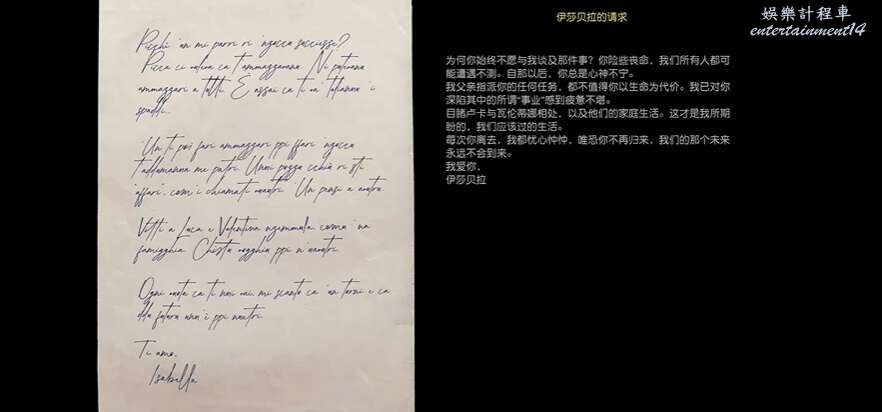 Picchì 'un mi parri ri 'ngocca
Ni putivanu
ammazzari a tutti. E assai ca ti va' taliannu i
spaddi.
'Un ti poi fari ammazzari ppi ffari 'ngocca
me patri. Unni pozzu cchiù ri sti
"affari", com'i chiamati 'Un pensi a nuatri.
Vitti a Luca e Valentina
famigghia. Chistu vogghiu ppi n'nuatri.
Ogni vota ca ti nni vai, mi scantu ca 'un torni e ca
ddu futuru unn'è ppi nuatri.
Ti amo,
Isabella
娛樂計程車
entertainment14
伊莎贝拉的请求
为何你始终不愿与我谈及那件事？你险些丧命，我们所有人都可
能遭遇不测。自那以后，你总是心神不宁。
我父亲指派你的任何任务，都不值得你以生命为代价。我已对你
深陷其中的所谓“事业”感到疲惫不堪。
目睹卢卡与瓦伦蒂娜相处，以及他们的家庭生活。这才是我所期
盼的，我们应该过的生活。
每次你离去，我都忧心忡忡，唯恐你不再归来，我们的那个未来
永远不会到来。
我爱你，
伊莎贝拉